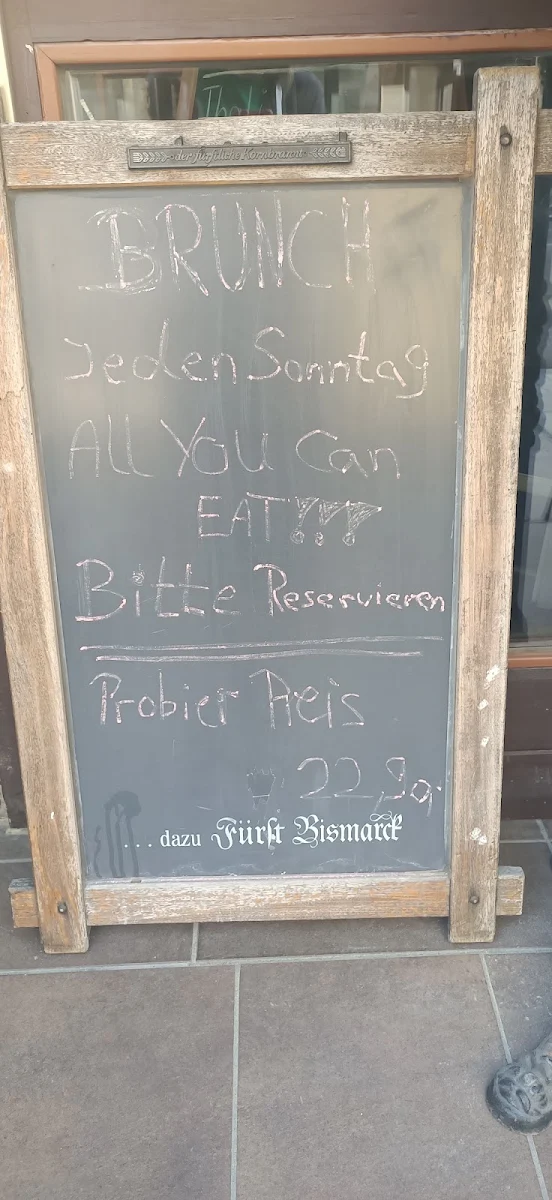 der fürstliche Kornbrannt
BRUNCH
Jeden Sonntag
All You Can
EAT!!!
Bitte Reservieren
Probier Preis
22,90
... dazu Fürst Bismarck